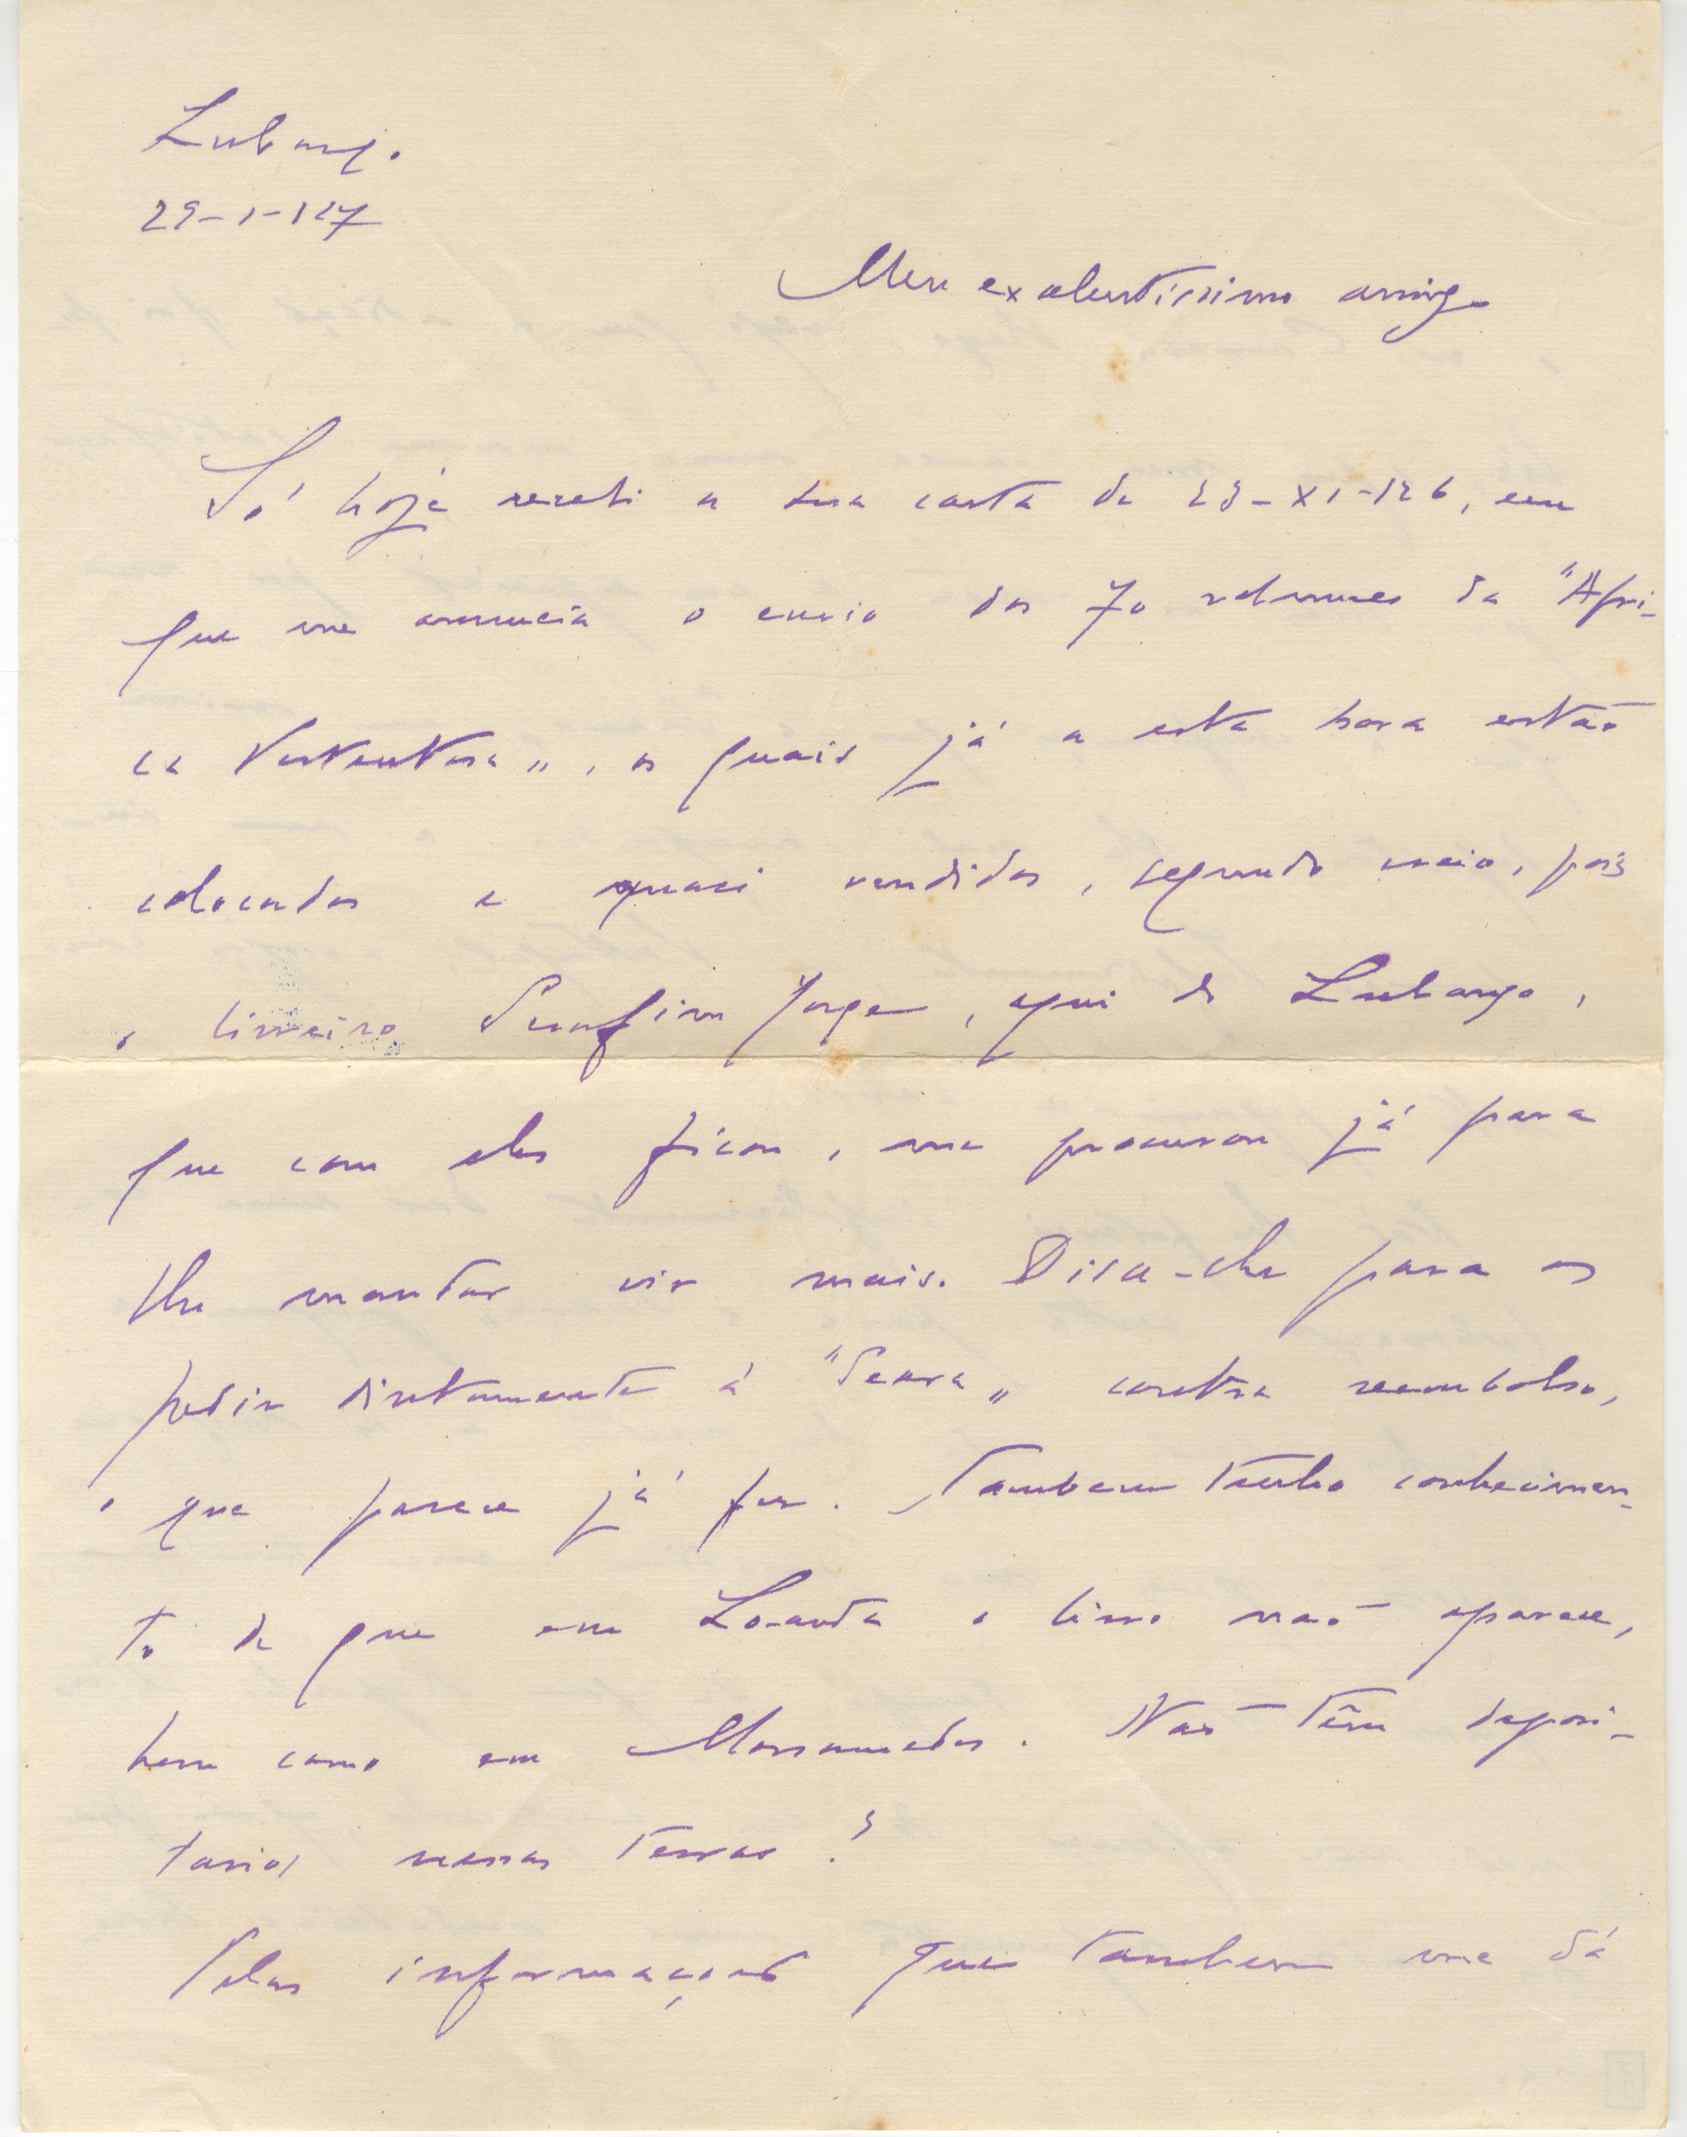 Lubango.
29-1-927
Meu excelentissimo amigo
Só hoje recebi a sua carta de 23-XI-926, em
que me anuncia o envio dos 70 volumes da "Afri-
ca Portentosa", os quais já a esta hora estão
colocados e quasi vendidos, segundo creio, pois
o livreiro Serafim Jorge, aqui do Lubango,
que com eles ficou, me procurou já para
lhe mandar vir mais. Disse-lhe para os
pedir diretamente á "Seara" contra reembolso,
o que parece já fez. Tambem tenho conhecimen-
to de que em Loanda o livro não aparece,
bem como em Mossamedes. Não têm deposi-
tarios nessas terras?
Pelas informações que tambem me dá